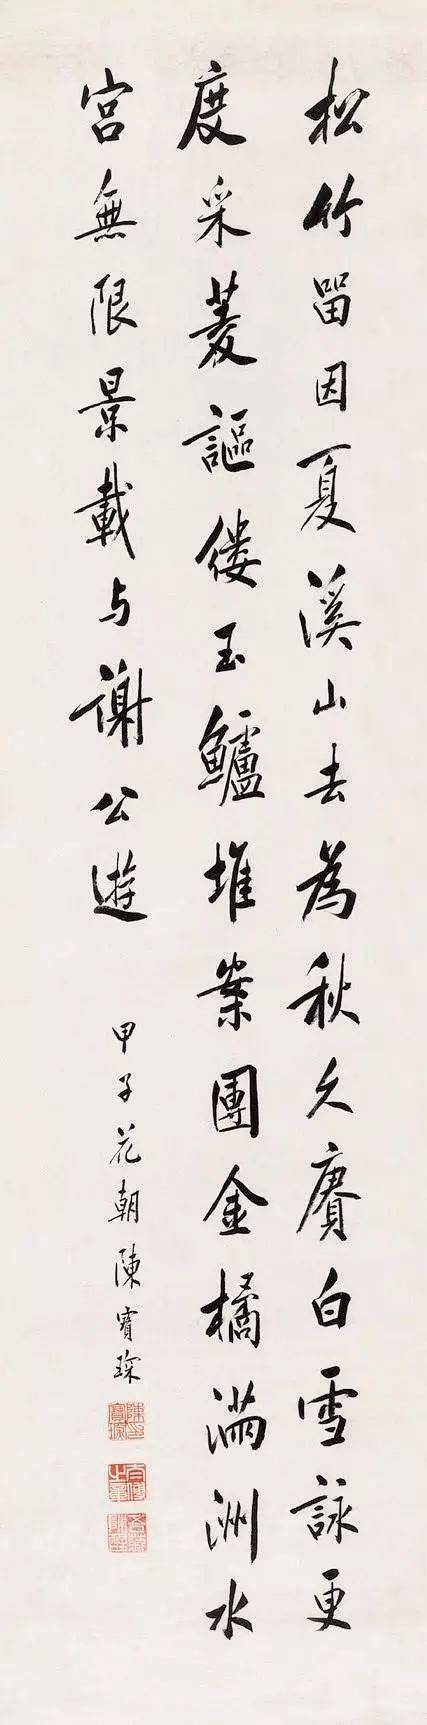 松竹留因夏溪山去為秋久賡白雪詠更
度采菱謳縷玉鱸堆案團金橘滿洲水
宮無限景載与謝公遊
甲子花朝陳寶琛